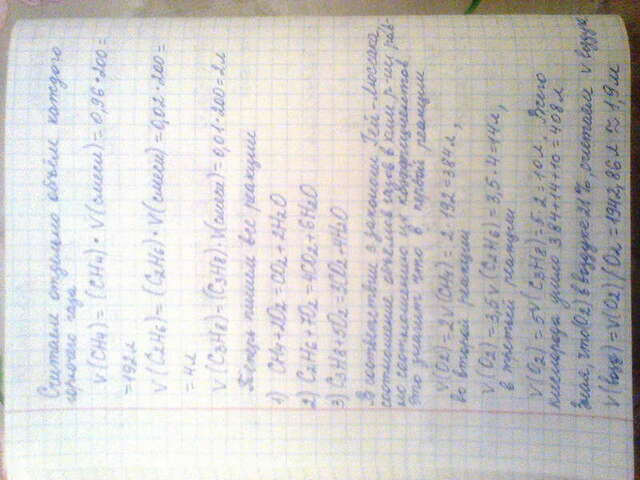 Считаем отдельно объём каждого
горючего газа
V(CH4) = (CH4) • V(смеси) = 0,96 • 200 =
= 192л
V(C2H6) = (C2H6) • V(смеси) = 0,02 • 200 =
= 4л
V(C3H8) = (C3H8) • V(смеси) = 0,01 • 200 = 2л
Теперь пишем все реакции
1) CH4 + 2O2 = CO2 + 2H2O
2) C2H6 + 7O2 = 4CO2 + 6H2O
3) C3H8 + 5O2 = 3CO2 + 4H2O
В соответствии з законом Гей-Люссака,
соотношение объёмов газов в хим р-ии рав-
но соотношению их коэффициентов
Это значит что в первой реакции
V(O2) = 2V(CH4) = 2 • 192 = 384л,
во второй реакции
V(O2) = 3,5V(C2H6) = 3,5 • 4 = 14л,
в третьей реакции
V(O2) = 5V(C3H8) = 5 • 2 = 10л. Всего
кислорода ушло 384 + 14 + 10 = 408л
Зная, что (O2) в воздухе 21%, считаем V воздуха
V(возд) = V(O2) / O2 = 1942,86л ≈ 1,9м